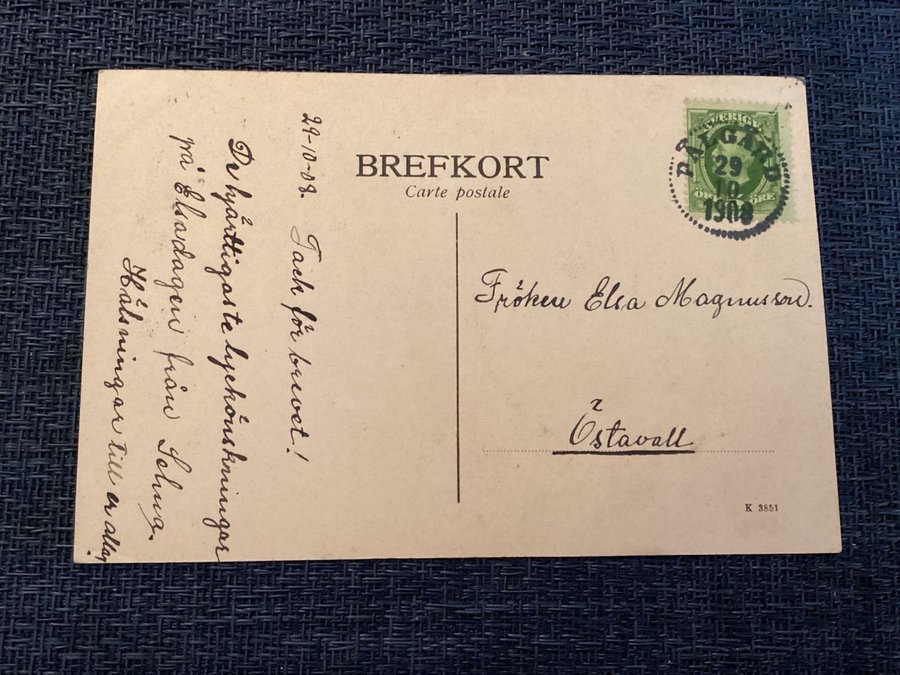 BREFKORT
Carte postale
SVERIGE
PÅLGÅRD
29
10
1908
ÖRE
29-10-08. Tack för brevet!
De hjärtligaste lyckönskningar
på Elsadagen från Selma.
Hälsningar till er alla,
Fröken Elsa Magnusson.
Östavall
K 3851